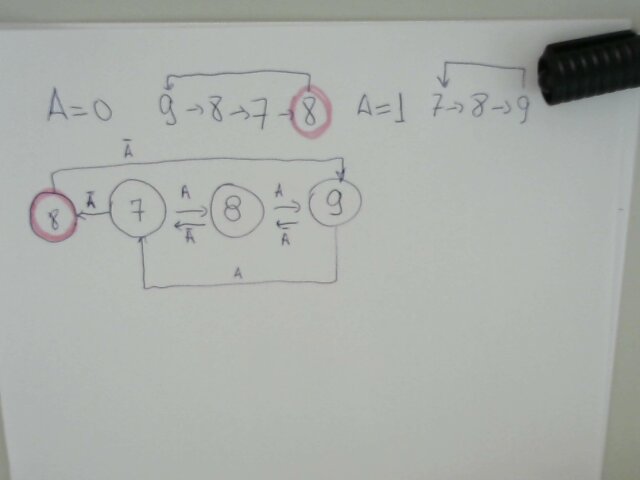 A=0 9→8→7→8 A=1 7→8→9
Ā
8 Ā 7 A Ā 8 A Ā 9
A